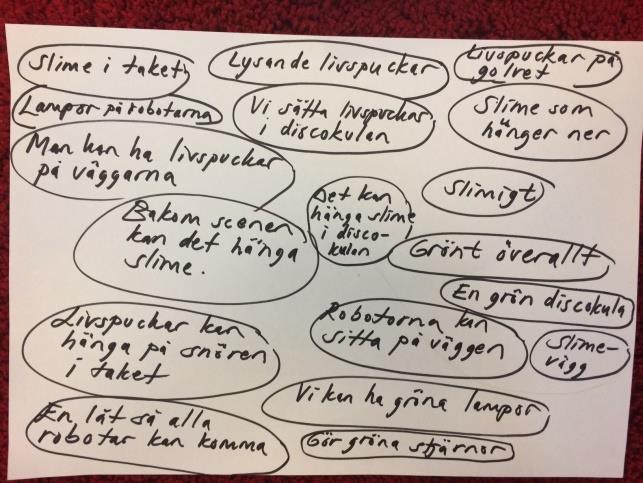 Slime i taket
Lysande livspuckar
Livspuckar på
golvet
Lampor på robotarna
Vi sätta livspuckar
i discokulan
Slime som
hänger ner
Man kan ha livspuckar
på väggarna
Det kan
hänga slime
i disco-
kulan
Slimigt
Bakom scenen
kan det hänga
slime.
Grönt överallt
En grön discokula
Livspuckar kan
hänga på snören
i taket
Robotorna kan
sitta på väggen
Slime-
vägg
Vi kan ha gröna lampor
En låt så alla
robotar kan komma
Gör gröna stjärnor